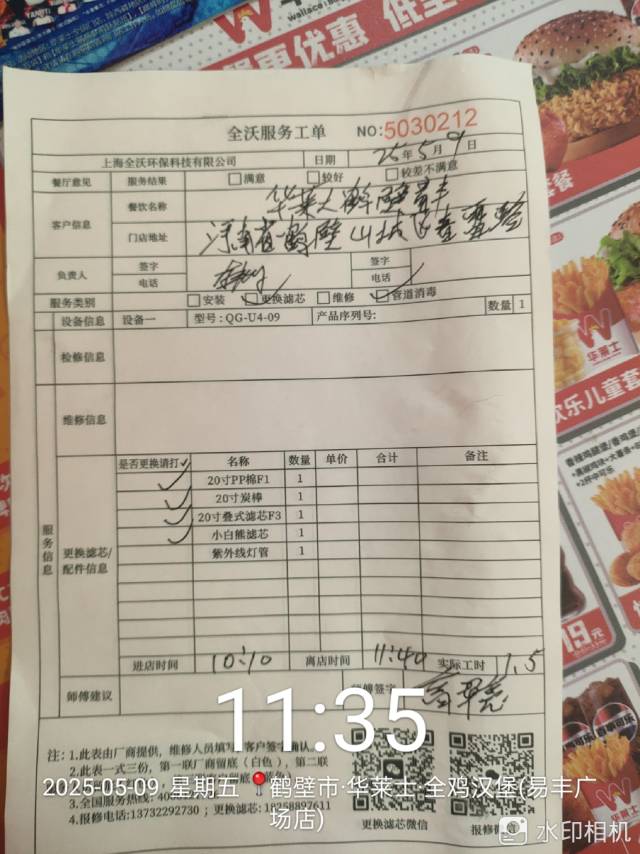 华莱士
优惠 低至
全沃服务工单 NO:5030212
上海全沃环保科技有限公司 日期 25年5月9日
餐厅意见 服务结果 满意 较好 较差不满意
客户信息 餐饮名称 华莱士鹤壁易丰
门店地址 河南省鹤壁山城区
负责人 签字 签字
电话 电话
服务类别 安装 更换滤芯 维修 管道消毒 数量 1
设备信息 设备一 型号:QG-U4-09 产品序列号:
检修信息
维修信息
服务信息
更换滤芯/配件信息
是否更换请打✓ 名称 数量 单价 合计 备注
✓ 20寸PP棉F1 1
✓ 20寸炭棒 1
✓ 20寸叠式滤芯F3 1
✓ 小白熊滤芯 1
紫外线灯管 1
进店时间 10:10 离店时间 11:40 实际工时 1.5
师傅建议 签字
11:35
注:1.此表由厂商提供,维修人员填 客户签字确认。
2.此表一式三份,第一联厂商留底(白色),第二联
2025-05-09 星期五 鹤壁市·华莱士·全鸡汉堡(易丰广场店)
3.全国服务热线:
4.报修电话:13732292730;更换滤芯:18258897611
更换滤芯微信 报修微信
水印相机
华莱士
欢乐儿童套
19元